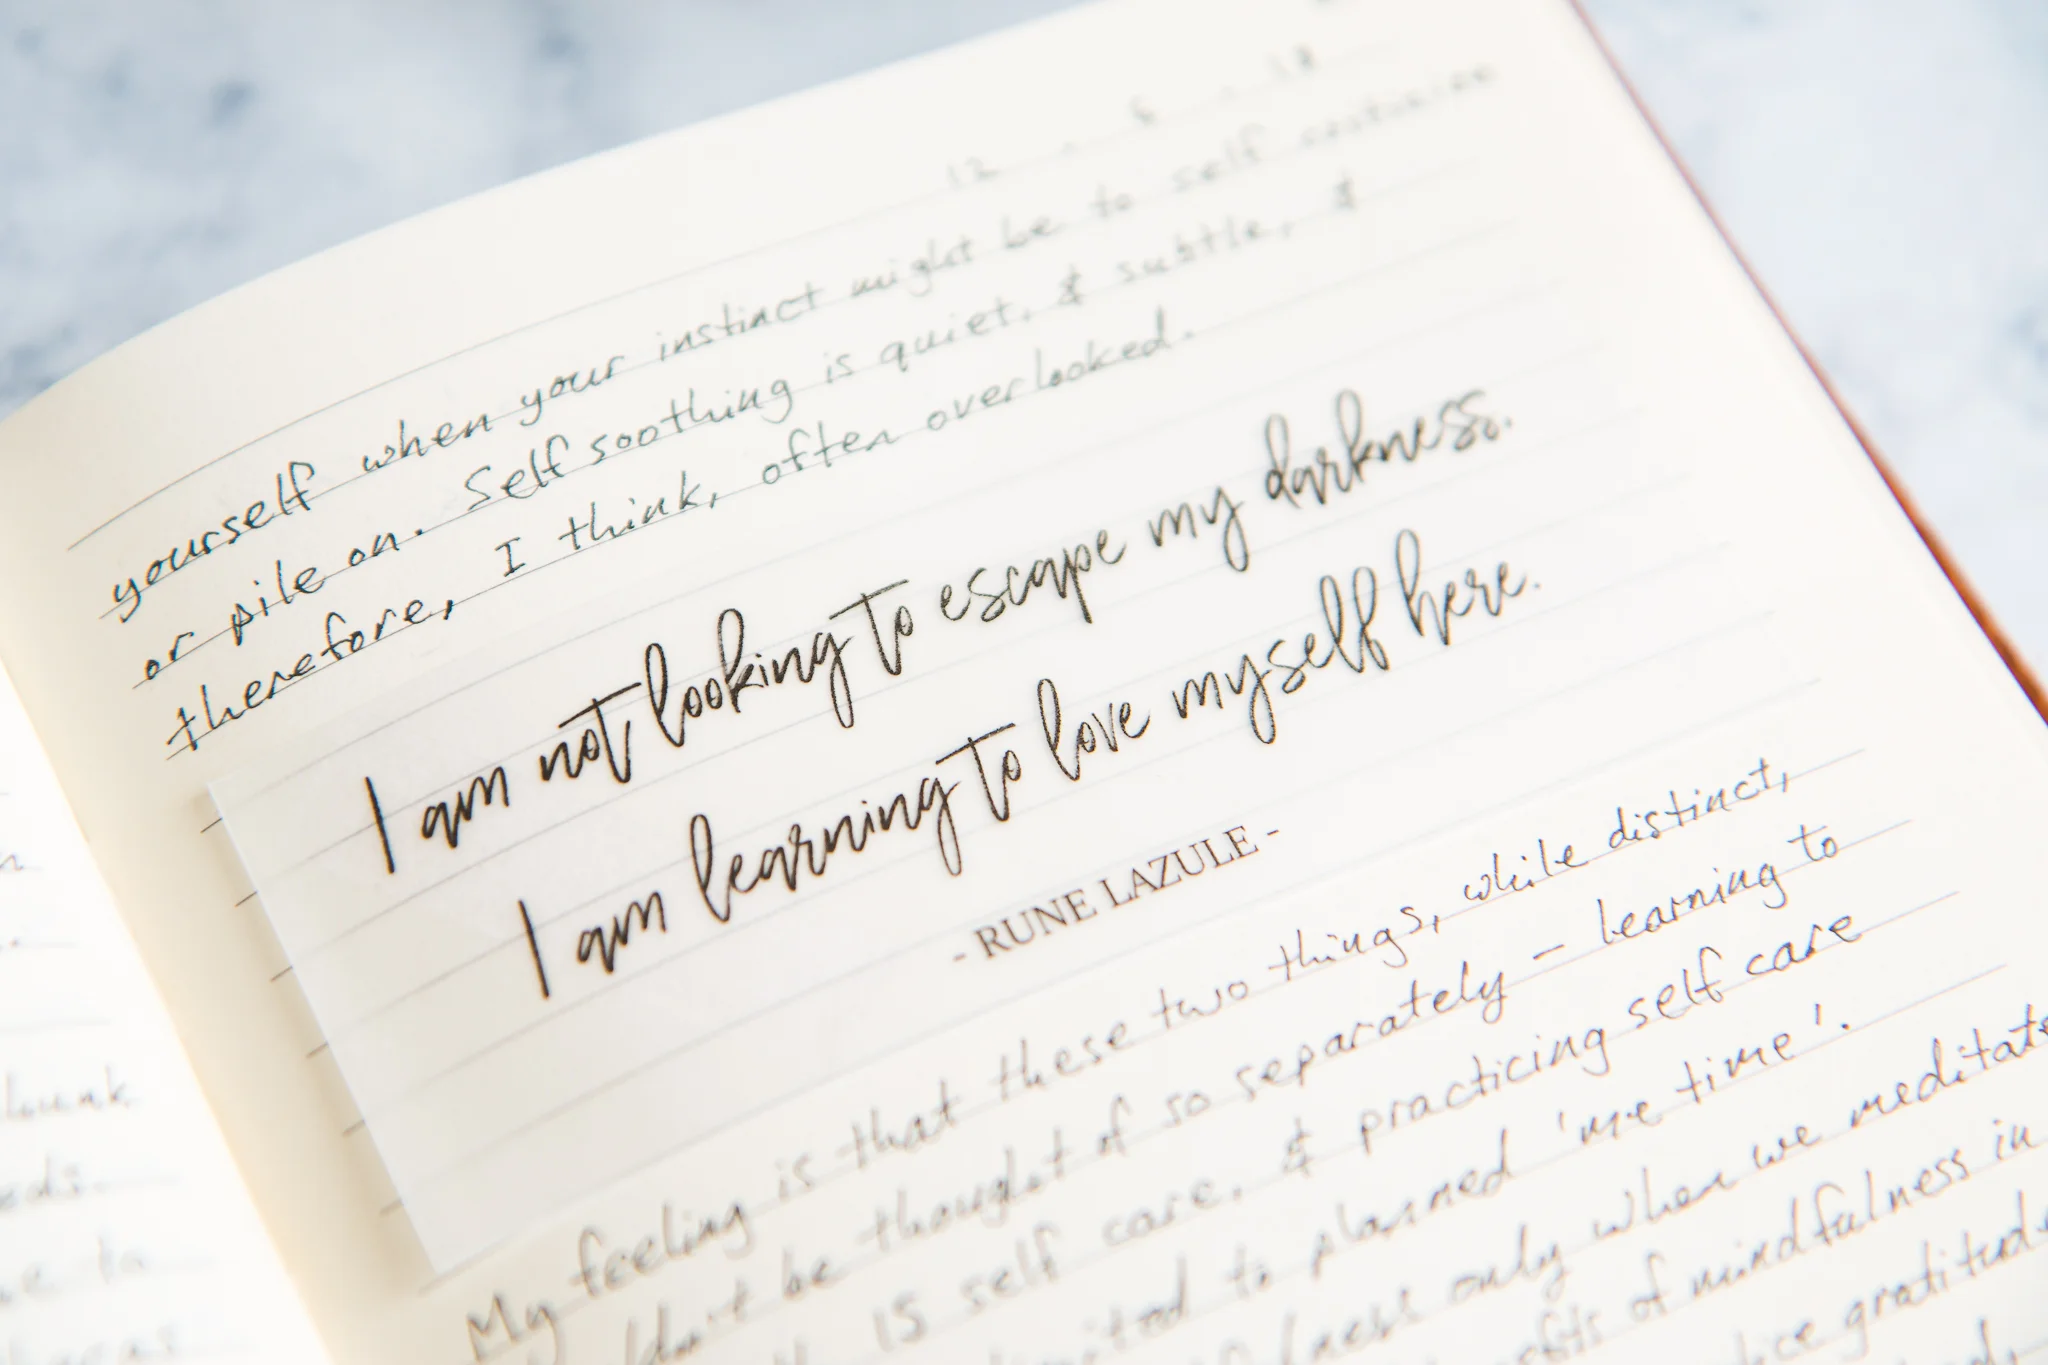 12 . 6 . 18
yourself when your instinct might be to self criticize
or pile on. Self soothing is quiet, & subtle, &
therefore, I think, often overlooked.
I am not looking to escape my darkness.
I am learning to love myself here.
- RUNE LAZULE -
My feeling is that these two things, while distinct,
be thought of so separately – learning to
IS self care, & practicing self care
to planned 'me time'.
only when we meditate
of mindfulness in
gratitude